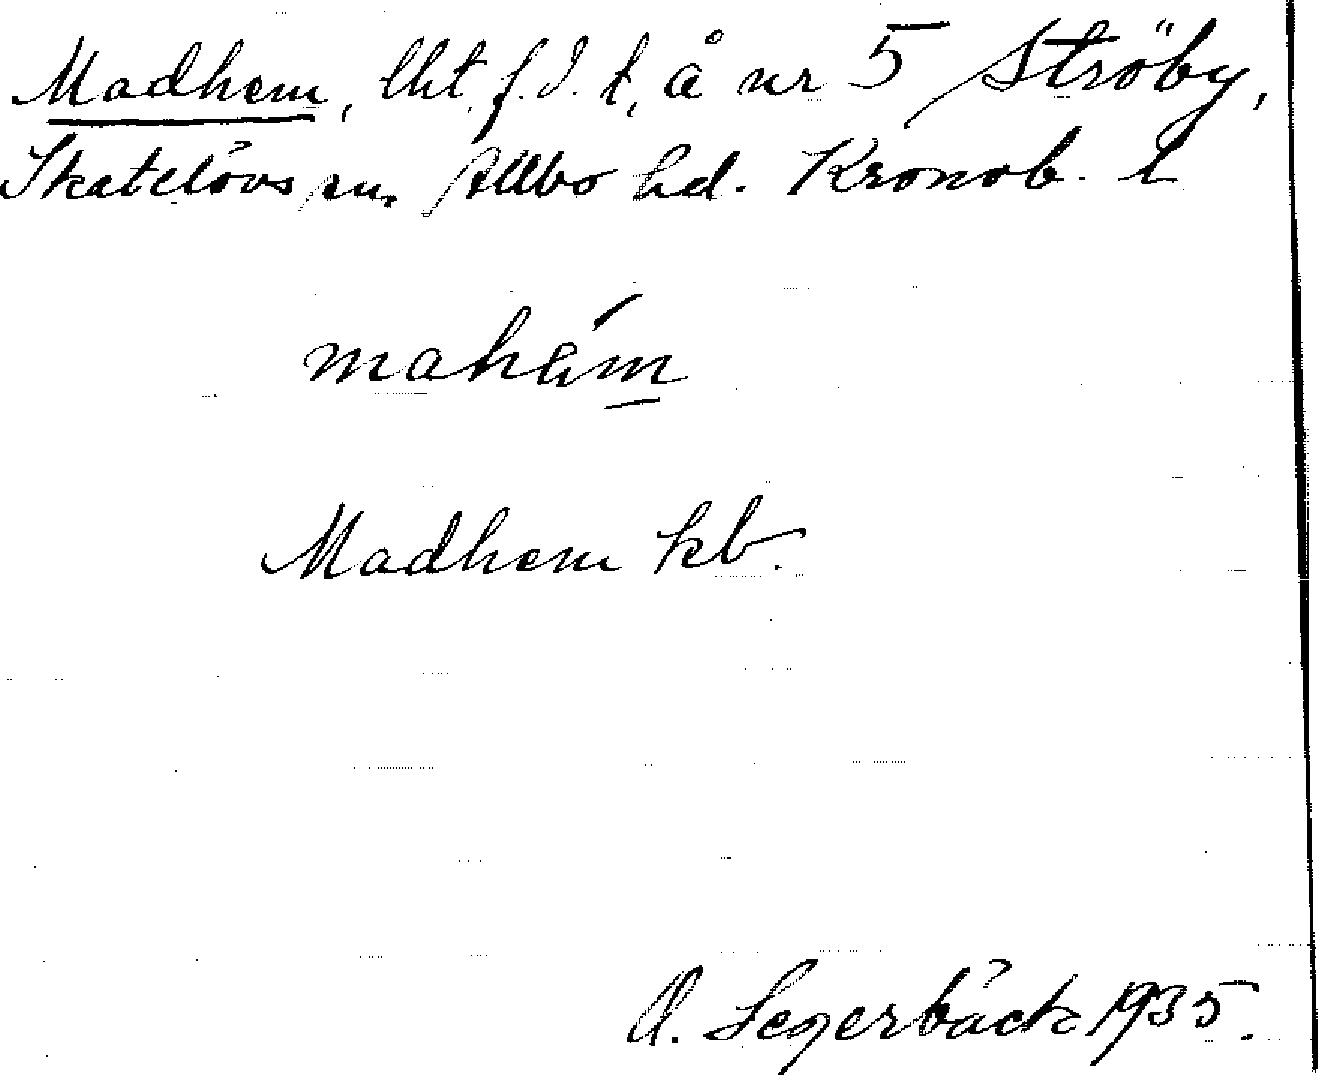 Madhem, lht, f.d. t, å nr 5 Ströby,
Skatelövs sn. Allbo hd. Kronob. l
mahäm
Madhem kb.
O. Segerbäck 1935.